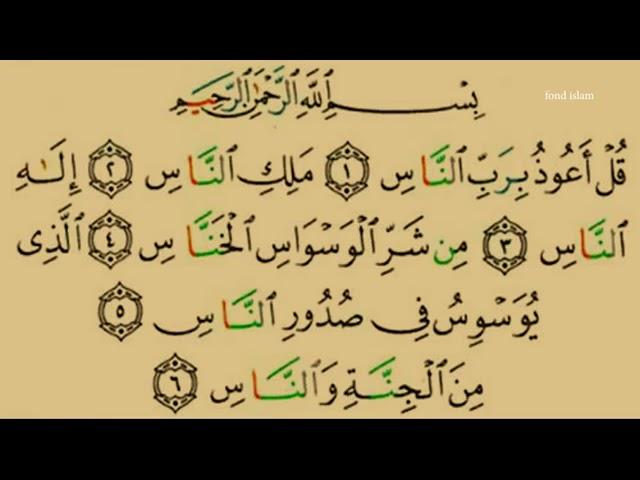 fond islam
بِسْمِ ٱللَّهِ ٱلرَّحْمَٰنِ ٱلرَّحِيمِ
قُلْ أَعُوذُ بِرَبِّ ٱلنَّاسِ ١ مَلِكِ ٱلنَّاسِ ٢ إِلَٰهِ
ٱلنَّاسِ ٣ مِن شَرِّ ٱلْوَسْوَاسِ ٱلْخَنَّاسِ ٤ ٱلَّذِى
يُوَسْوِسُ فِى صُدُورِ ٱلنَّاسِ ٥
مِنَ ٱلْجِنَّةِ وَٱلنَّاسِ ٦